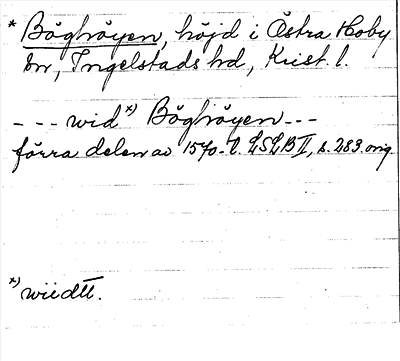 * Böghöyen, höjd i Östra Hoby
sn, Ingelstads hd, Krist. l.
- - - wid *) Böghöyen - - -
förra delen av 1570-t. LSLB II, s. 283. orig.
*) wiidtt.